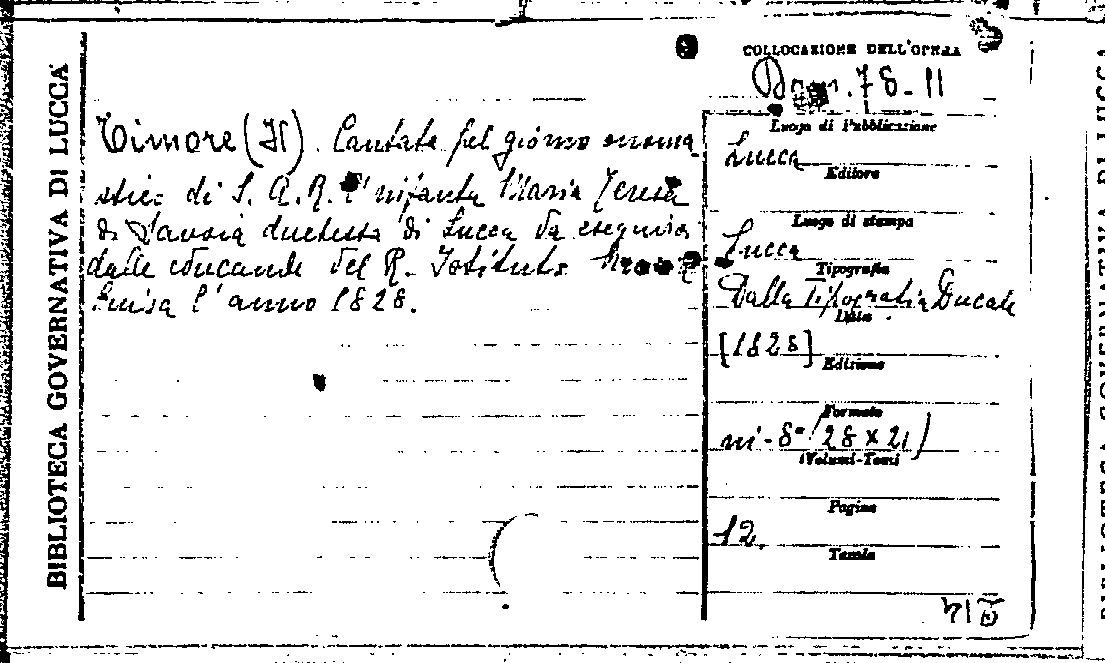 BIBLIOTECA GOVERNATIVA DI LUCCA
COLLOCAZIONE DELL'OPERA
78-11
Timore (Il). Cantata pel giorno onoma-
stico di S. A. R. l'infanta Maria Teresa
di Savoia duchessa di Lucca da eseguirsi
dalle educande del R. Istituto
Luisa l'anno 1828.
Luogo di Pubblicazione
Lucca
Editore
Luogo di stampa
Lucca
Tipografia
Dalla Tipografia Ducale
Data
[1828]
Edizione
Formato
in-8° (28 x 21)
(Volumi-Tomi)
Pagine
12.
Tavole